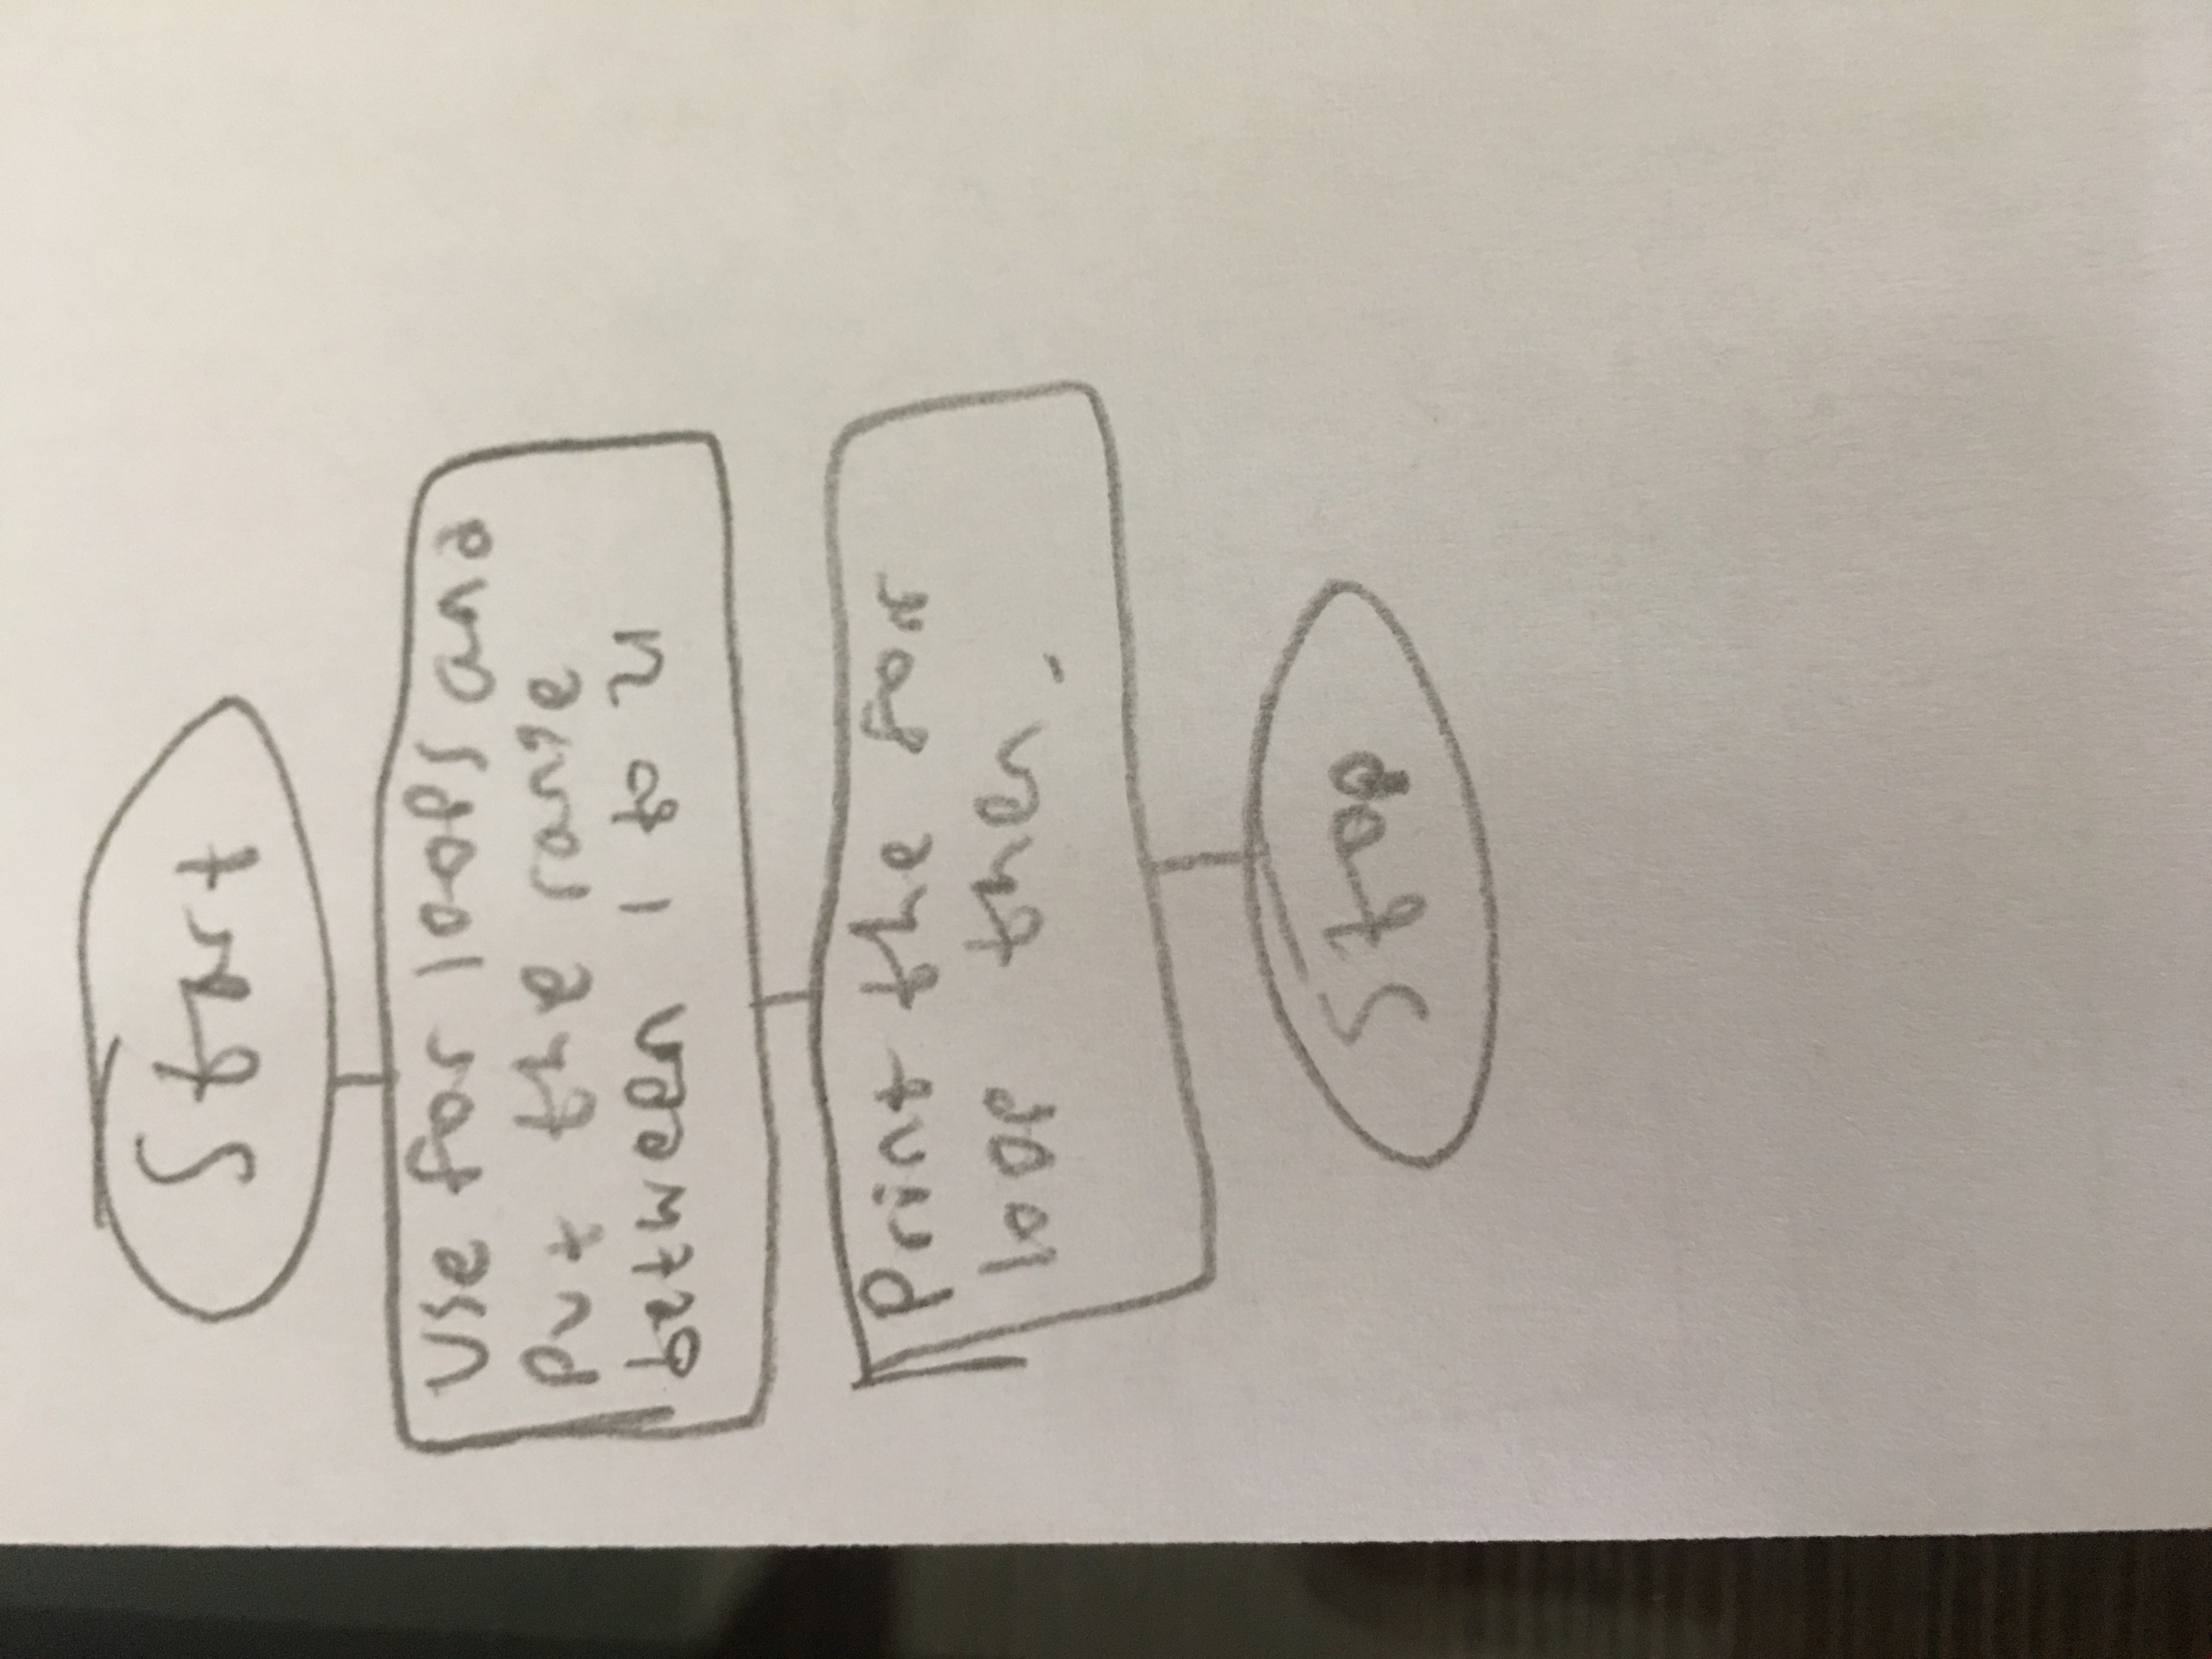 Start
Use for loops and
Put the range
between 1 to 21
Print the for
loop then.
Stop